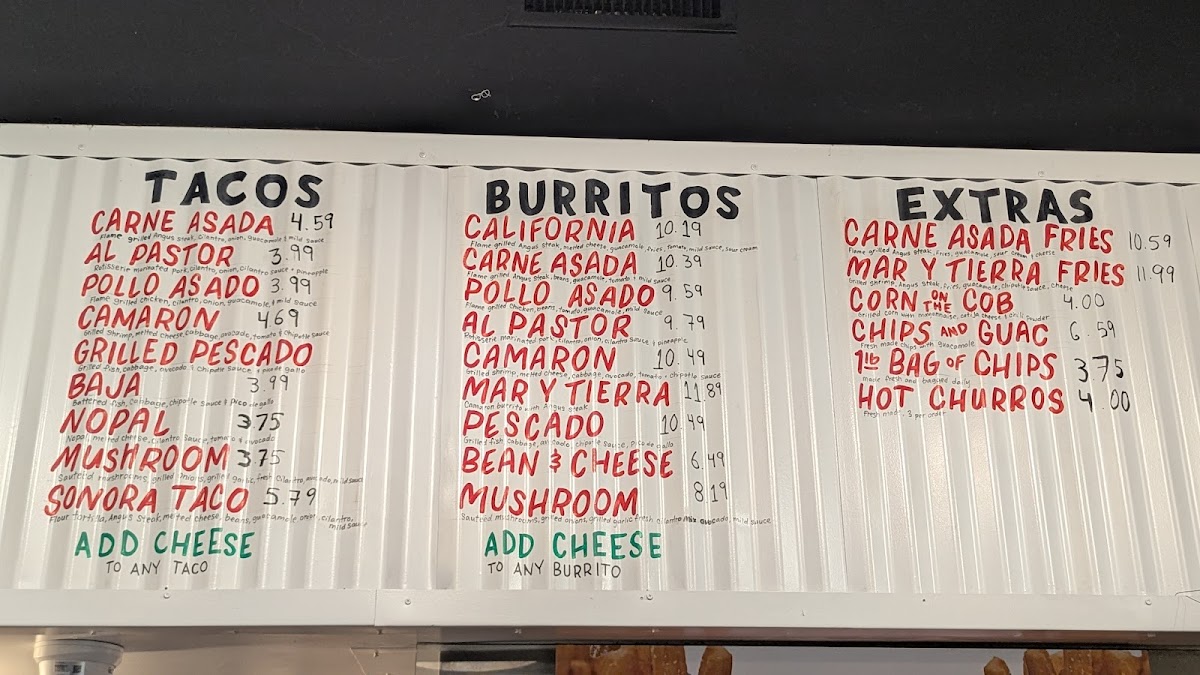 TACOS
CARNE ASADA 4.59
Flame grilled Angus steak, cilantro, onion, guacamole & mild sauce
AL PASTOR 3.99
Rotisserie marinated pork, cilantro, onion, cilantro sauce & pineapple
POLLO ASADO 3.99
Flame grilled chicken, cilantro, onion, guacamole, & mild sauce
CAMARON 4.69
Grilled shrimp, melted cheese, cabbage, avocado, tomato & chipotle sauce
GRILLED PESCADO
Grilled fish, cabbage, avocado & chipotle sauce & pico de gallo
BAJA 3.99
Battered fish, cabbage, chipotle sauce & pico de gallo
NOPAL 3.75
Nopal, melted cheese, cilantro sauce, tomato & avocado
MUSHROOM 3.75
Sauteed mushrooms, grilled onions, grilled garlic, fresh cilantro, avocado, mild sauce
SONORA TACO 5.79
Flour tortilla, Angus steak, melted cheese, beans, guacamole onion, cilantro,
mild sauce
ADD CHEESE
TO ANY TACO
BURRITOS
CALIFORNIA 10.19
Flame grilled Angus steak, melted cheese, guacamole, fries, tomato, mild sauce, sour cream
CARNE ASADA 10.39
Flame grilled Angus steak, beans, guacamole, tomato & mild sauce
POLLO ASADO 9.59
Flame grilled chicken, beans, tomato, guacamole, mild sauce
AL PASTOR 9.79
Rotisserie marinated pork, cilantro, onion, cilantro sauce & pineapple
CAMARON 10.49
Grilled shrimp, melted cheese, cabbage, avocado, tomato & chipotle sauce
MAR Y TIERRA 11.89
Camaron burrito with Angus steak
PESCADO 10.49
Grilled fish, cabbage, avocado, chipotle sauce, pico de gallo
BEAN & CHEESE 6.49
MUSHROOM 8.19
Sauteed mushrooms, grilled onions, grilled garlic fresh cilantro mix avocado, mild sauce
ADD CHEESE
TO ANY BURRITO
EXTRAS
CARNE ASADA FRIES 10.59
Flame grilled Angus steak, fries, guacamole, sour cream & cheese
MAR Y TIERRA FRIES 11.99
Grilled shrimp, Angus steak, fries, guacamole, chipotle sauce, cheese
CORN ON THE COB 4.00
Grilled corn with mayonnaise, cotija cheese & chili powder
CHIPS AND GUAC 6.59
Fresh made chips with guacamole
1lb BAG OF CHIPS 3.75
made fresh and bagged daily
HOT CHURROS 4.00
Fresh made, 3 per order